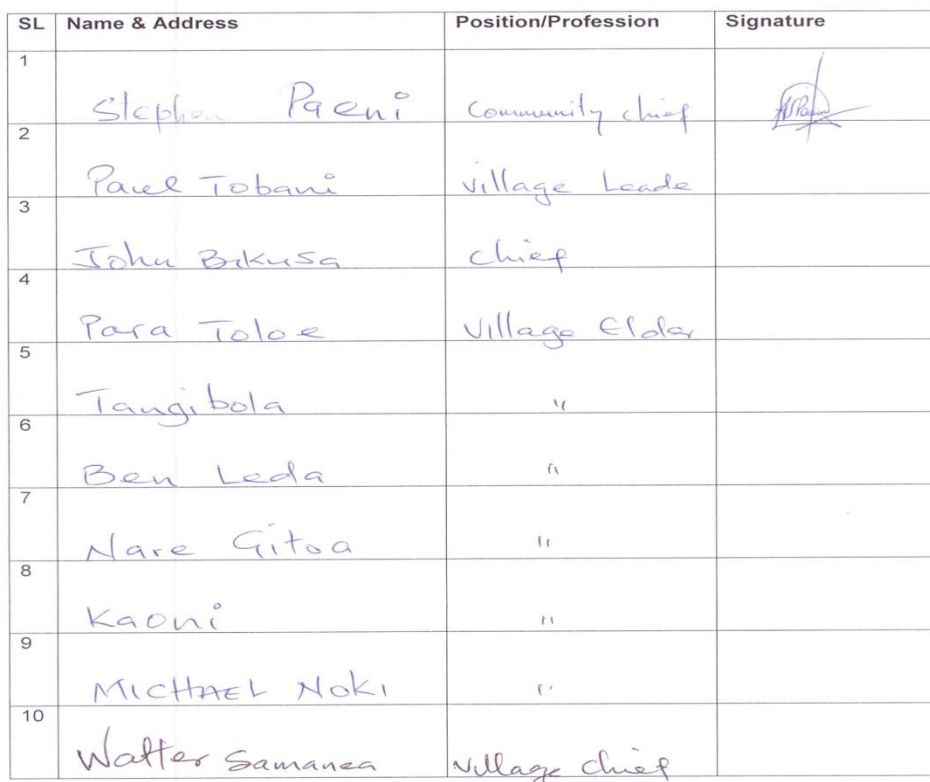 SL Name & Address Position/Profession Signature
1
Stephen Paeni Community chief
2
Paul Tobani village Leade
3
John Bakusa chief
4
Para Toloe Village Elder
5
Tangibola "
6
Ben Leda "
7
Nare Gitoa "
8
Kaoni "
9
MICHAEL NOKI "
10
Walter Samanea village chief